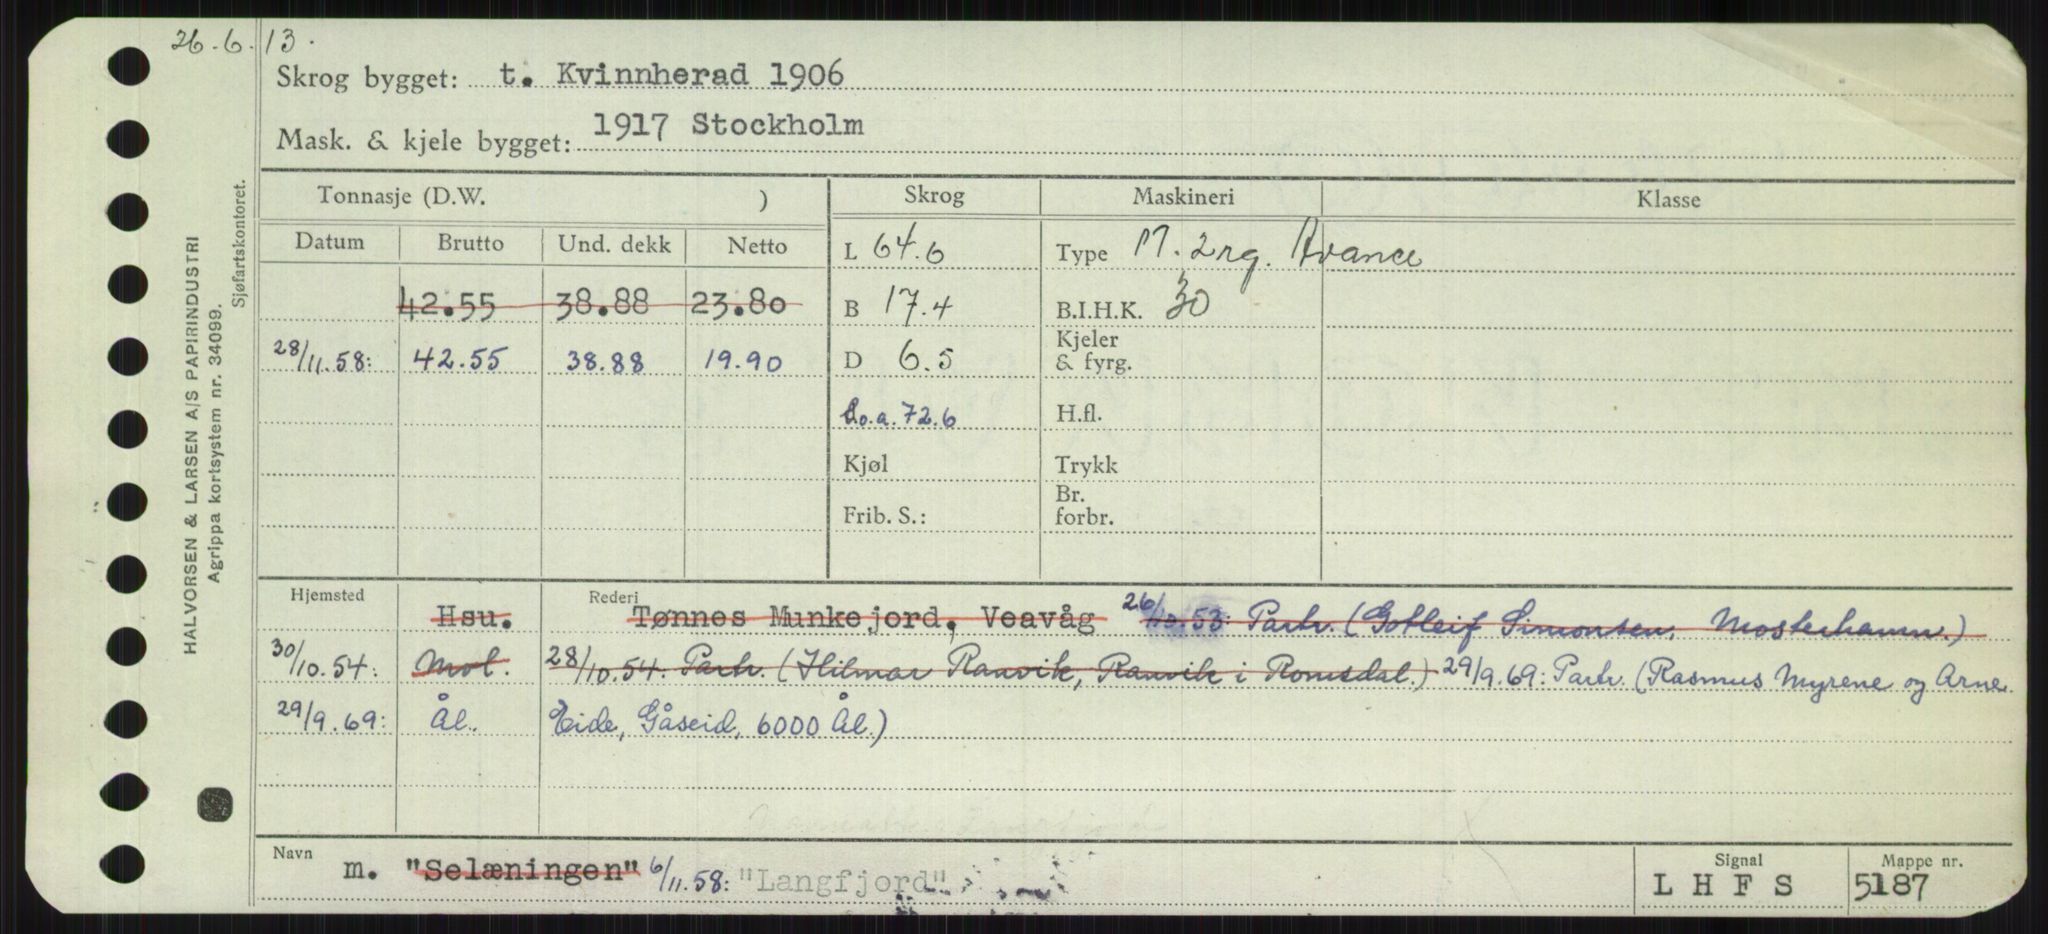 26.6.13.
Skrog bygget: t. Kvinnherad 1906
Mask. & kjele bygget: 1917 Stockholm
HALVORSEN & LARSEN A/S PAPIRINDUSTRI
Agrippa kortsystem nr. 34099.
Sjøfartskontoret.
Tonnasje (D.W. ) Skrog Maskineri Klasse
Datum Brutto Und. dekk Netto L 64.6 Type M. 2rg. Avance
42.55 38.88 23.80 B 17.4 B.I.H.K. 30
28/11.58: 42.55 38.88 19.90 D 6.5 Kjeler & fyrg.
Lo.a. 72.6 H.fl.
Kjøl Trykk
Frib. S.: Br. forbr.
Hjemsted Rederi
Hsu. Tønnes Munkejord, Veavåg 26/10.53: Partr. (Gotleif Simonsen, Mosterhamn.)
30/10.54: Mol. 28/10.54: Partr. (Hilmar Ranvik, Ranvik i Romsdal.) 29/9.69: Partr. (Rasmus Myrene og Arne
29/9.69: Ål. Eide, Gåseid, 6000 Ål.)
Navn Signal Mappe nr.
m. "Selæningen" 6/11.58: "Langfjord" L H F S 5187